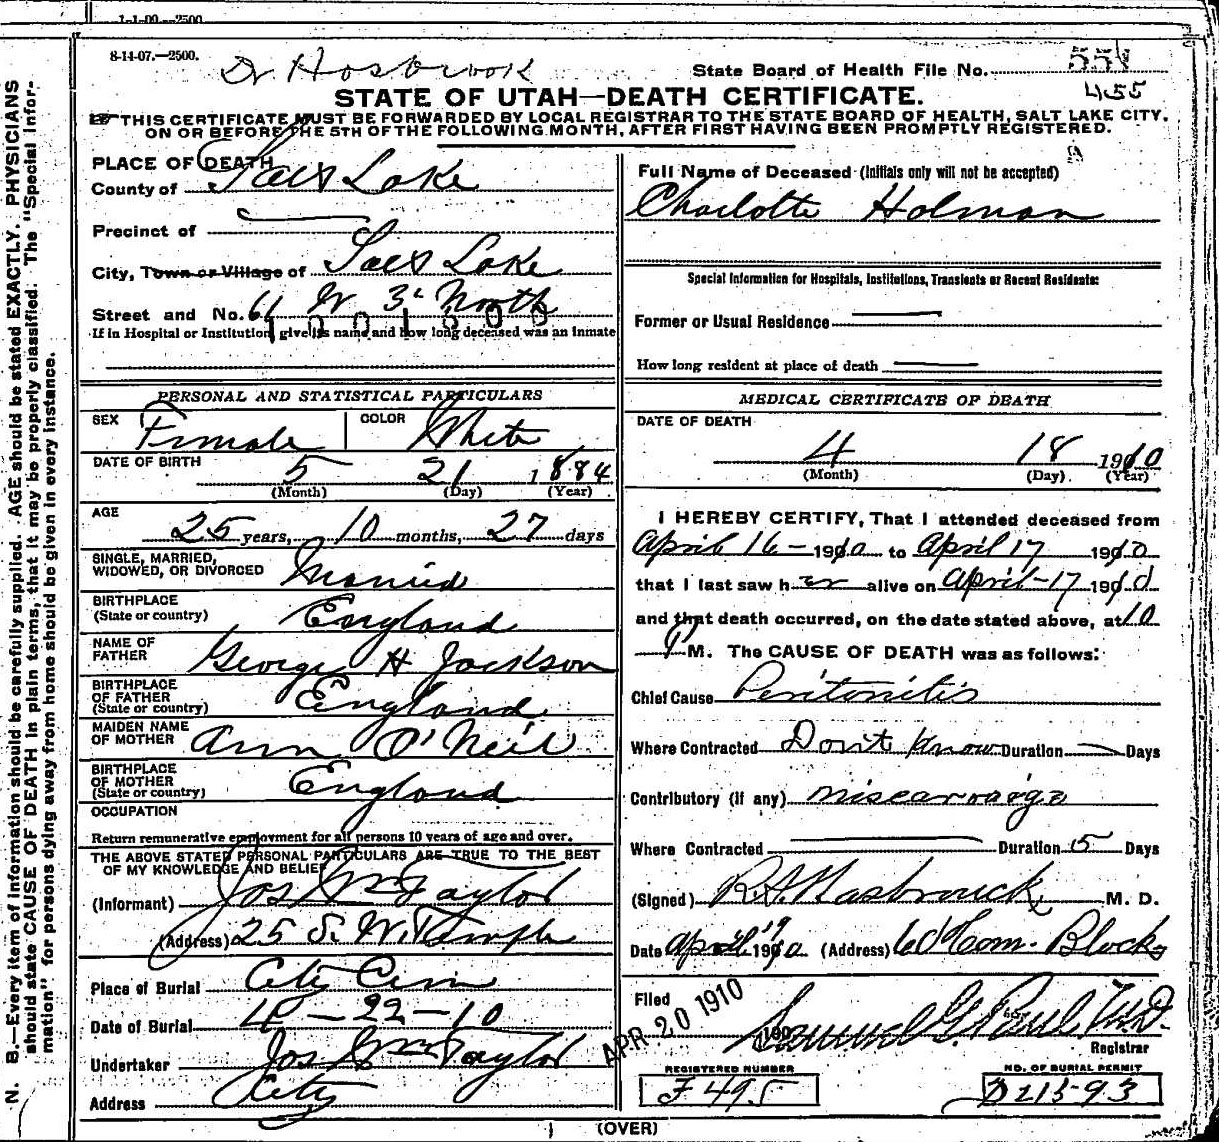 1-1-09.—2500
8-14-07.—2500.
Dr Hosbrook
State Board of Health File No.
455
STATE OF UTAH—DEATH CERTIFICATE.
THIS CERTIFICATE MUST BE FORWARDED BY LOCAL REGISTRAR TO THE STATE BOARD OF HEALTH, SALT LAKE CITY,
ON OR BEFORE THE 5TH OF THE FOLLOWING MONTH, AFTER FIRST HAVING BEEN PROMPTLY REGISTERED.
N. B.—Every item of information should be carefully supplied. AGE should be stated EXACTLY. PHYSICIANS
should state CAUSE OF DEATH in plain terms, that it may be properly classified. The "Special Infor-
mation" for persons dying away from home should be given in every instance.
PLACE OF DEATH
County of Salt Lake
Precinct of
City, Town or Village of Salt Lake
Street and No. 61 W 3d North
If in Hospital or Institution, give its name and how long deceased was an inmate
PERSONAL AND STATISTICAL PARTICULARS
SEX Female COLOR White
DATE OF BIRTH 5 21 1884
(Month) (Day) (Year)
AGE
25 years, 10 months, 27 days
SINGLE, MARRIED,
WIDOWED, OR DIVORCED Married
BIRTHPLACE
(State or country) England
NAME OF
FATHER George H Jackson
BIRTHPLACE
OF FATHER
(State or country) England
MAIDEN NAME
OF MOTHER Ann O'Neil
BIRTHPLACE
OF MOTHER
(State or country) England
OCCUPATION
Return remunerative employment for all persons 10 years of age and over.
THE ABOVE STATED PERSONAL PARTICULARS ARE TRUE TO THE BEST
OF MY KNOWLEDGE AND BELIEF
(Informant) Jos Wm Taylor
(Address) 25 S. W. Temple
Place of Burial City Cem
Date of Burial 4-22-10
Undertaker Jos Wm Taylor
Address City
Full Name of Deceased (Initials only will not be accepted)
Charlotte Holman
Special Information for Hospitals, Institutions, Transients or Recent Residents:
Former or Usual Residence
How long resident at place of death
MEDICAL CERTIFICATE OF DEATH
DATE OF DEATH
4 18 1910
(Month) (Day) (Year)
I HEREBY CERTIFY, That I attended deceased from
April 16- 1910 to April 17 1910
that I last saw her alive on April-17 1910
and that death occurred, on the date stated above, at 10
M. The CAUSE OF DEATH was as follows:
Chief Cause Peritonitis
Where Contracted Don't know Duration Days
Contributory (if any) miscarraige
Where Contracted Duration 5 Days
(Signed) R. A. Hasbrouck M. D.
Date April 19 1910 (Address) 60 Com. Block
Filed APR 20 1910 190 Samuel G. Paul M.D.
Registrar
REGISTERED NUMBER
F 495
NO. OF BURIAL PERMIT
B21593
(OVER)